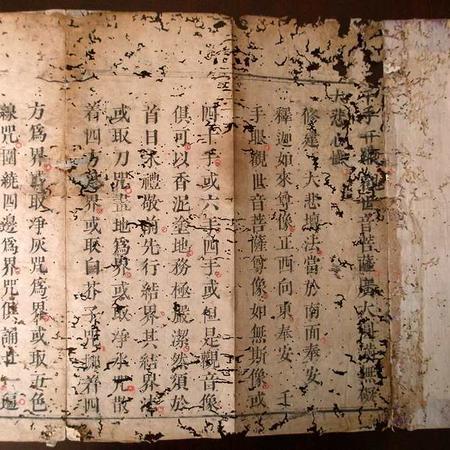 千手千眼觀世音菩薩廣大圓滿無礙
大悲心
修建大悲壇法當於南面奉安
釋迦如來尊像正西向東奉安 千
手眼觀世音菩薩尊像如無斯像或
四十手或六手四手或但是觀音像
俱可以香泥塗地務極嚴潔然須於
首日未禮敬前先行結界其結界法
或取刀咒畫地爲界或取淨水咒散
着四方爲界或取白芥子咒擲着四
方爲界或取淨灰咒爲界或取五色
線咒圍繞四邊爲界咒但誦廿一遍